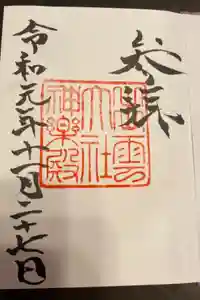 参拝
出雲
大社
神楽殿
令和元年十一月二十七日